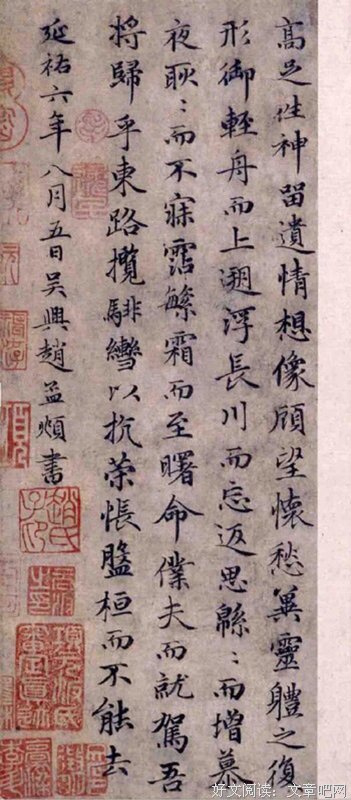 高足往神留遺情想像顧望懷愁冀靈體之復
形御輕舟而上遡浮長川而忘返思緜〻而增慕
夜耿〻而不寐霑繁霜而至曙命僕夫而就駕吾
將歸乎東路攬騑轡以抗策悵盤桓而不能去
延祐六年八月五日吳興趙孟頫書
好文阅读：文章吧网